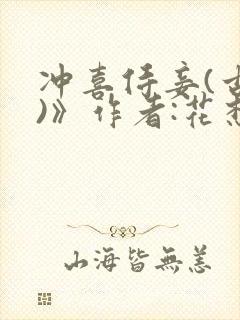 冲喜侍妾(古
)》作者:花
山海皆無恙